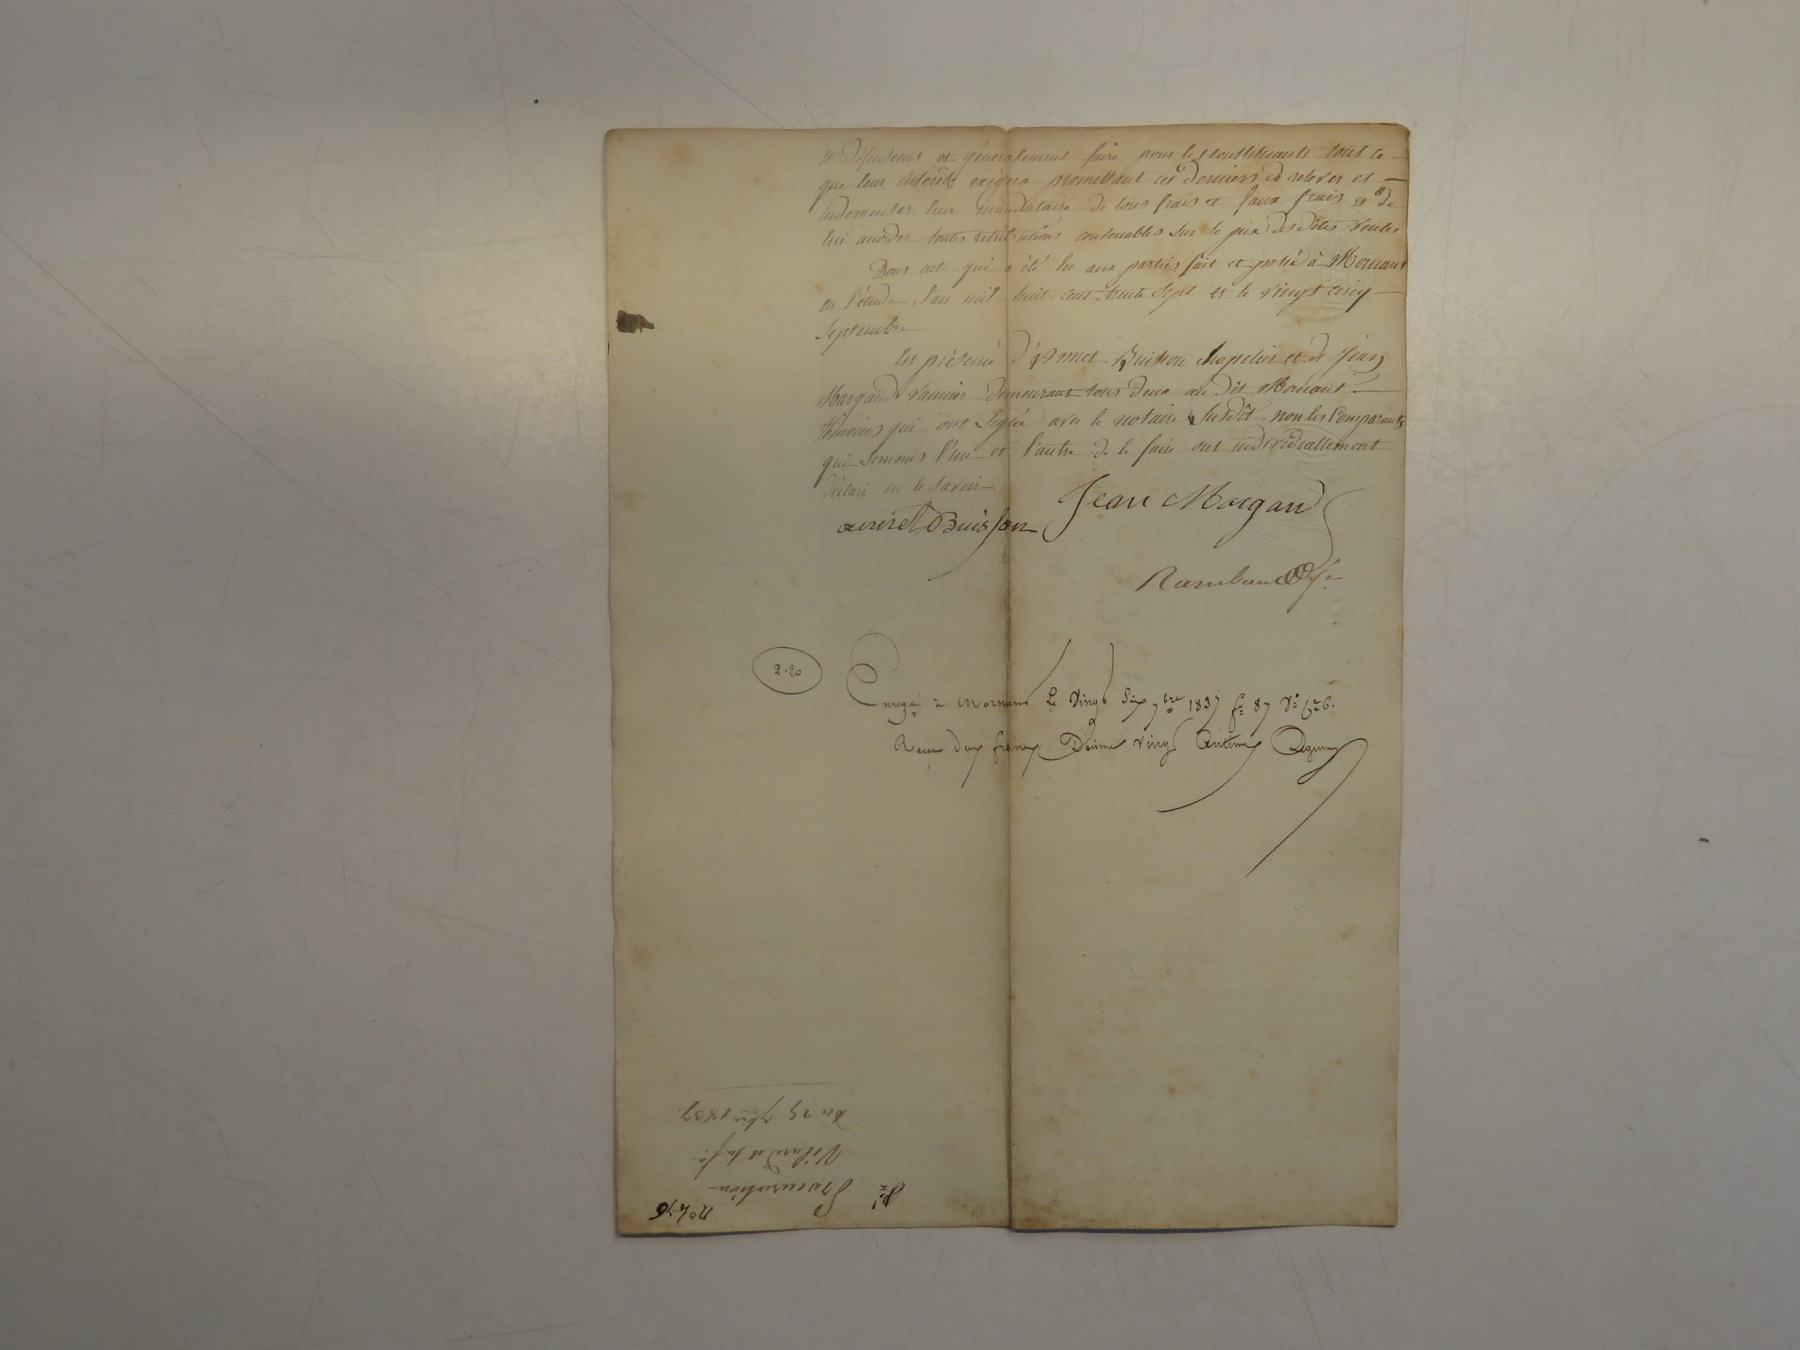 et Défenseurs et généralement faire pour les constituants tout ce
que leur intérêt exigera promettant ces derniers de relever et
indemniser leur mandataire de tous frais et faux frais et de
lui accorder toutes rétributions convenables sur le prix des dites ventes
Dont acte qui a été lu aux parties fait et passé à Mornant
en l'étude, l'an mil huit cent trente sept et le vingt cinq
Septembre
En présence d'Annet Buisson chapelier et de Jean
Morgand vannier demeurant tous deux au dit Mornant
témoins qui ont signé avec le notaire susdit non les comparants
qui sommés l'un et l'autre de le faire ont individuellement
déclaré ne le savoir
Jean Morgand
annet Buisson
Rambaud
2.20
Enregé à Mornant le vingt six 7bre 1837 fo 87 Vo Ce 6.
Reçu deux francs Décime vingt centimes
No 476
Procuration
Vilard et sa fe
Du 25 7bre 1837.